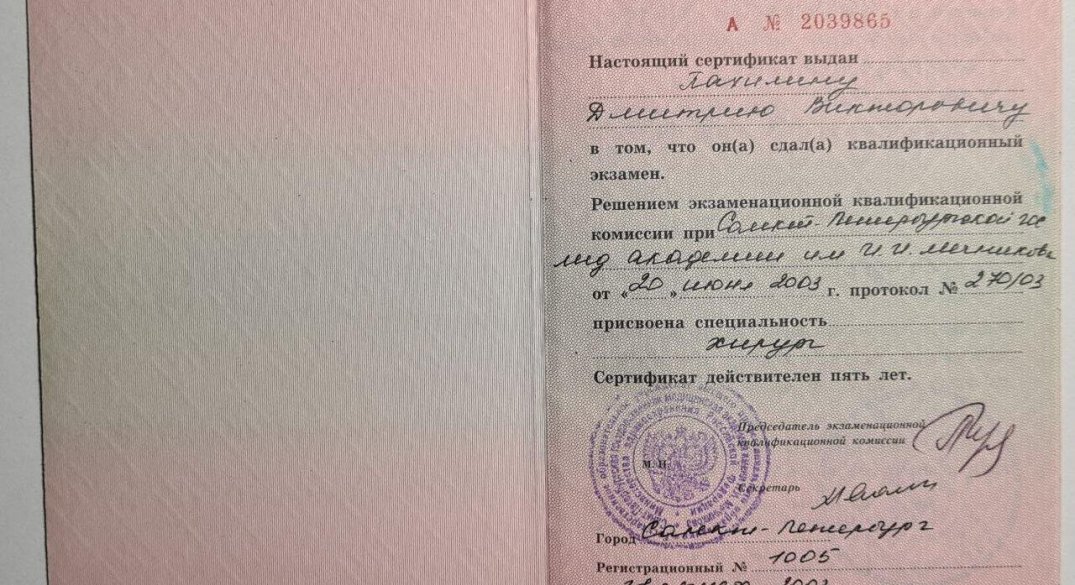 А № 2039865
Настоящий сертификат выдан
Пахилину
Дмитрию Викторовичу
в том, что он(а) сдал(а) квалификационный
экзамен.
Решением экзаменационной квалификационной
комиссии при Санкт-Петербургской гос
мед академии им И. И. Мечникова
от «20» июня 2003 г. протокол № 270/03
присвоена специальность
хирург
Сертификат действителен пять лет.
Председатель экзаменационной
квалификационной комиссии
М. П.
Секретарь
Город Санкт-Петербург
Регистрационный № 1005
2003